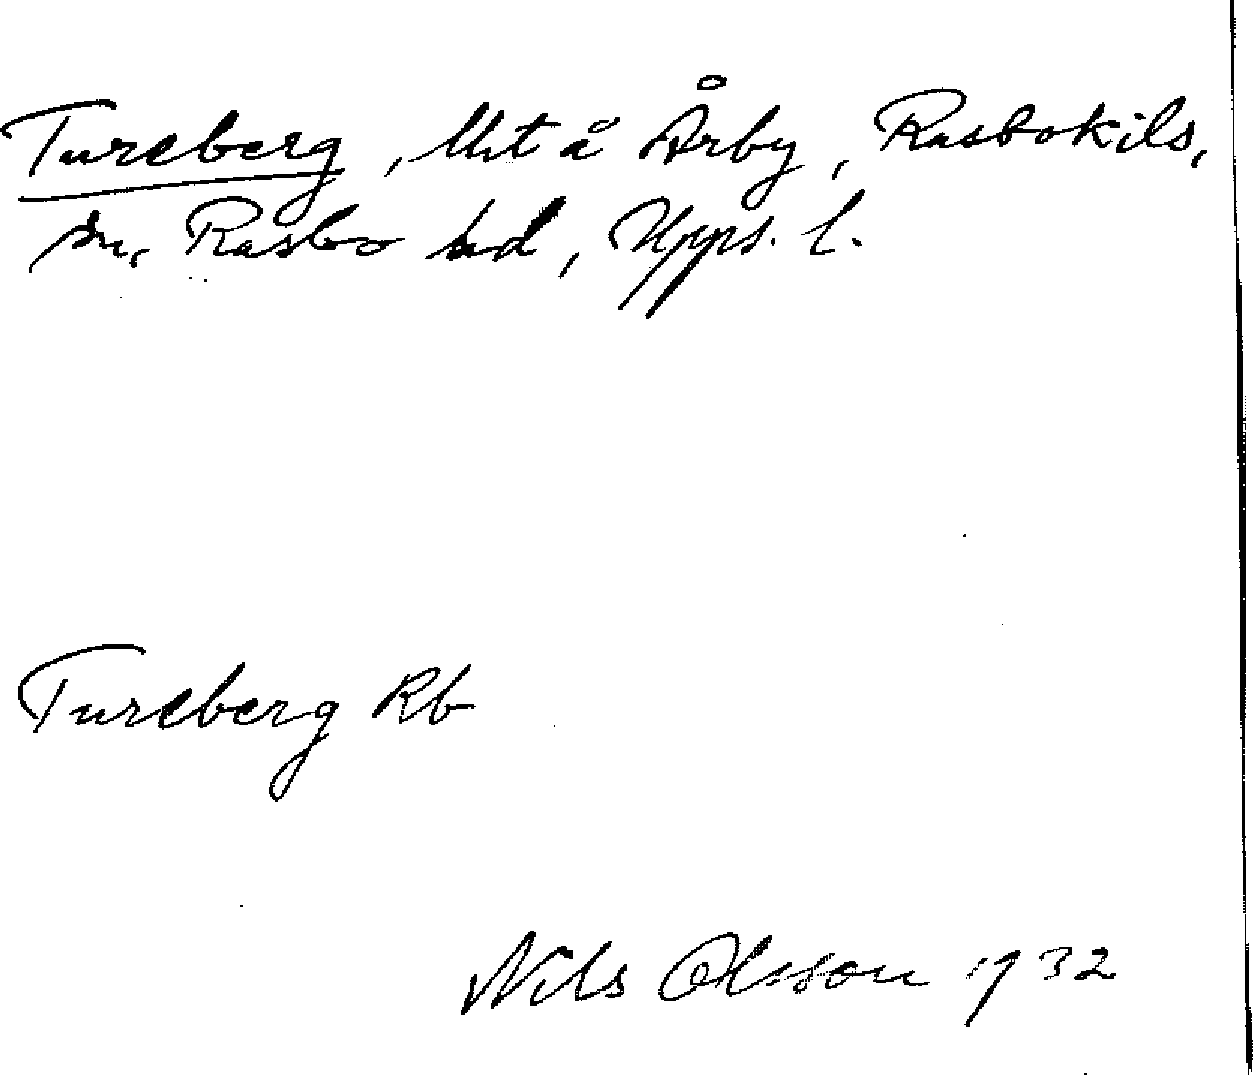 Tureberg, Uht å Årby, Rasbokils,
sn, Rasbo hd, Upps. l.
Tureberg Rb
Nils Olsson 1932